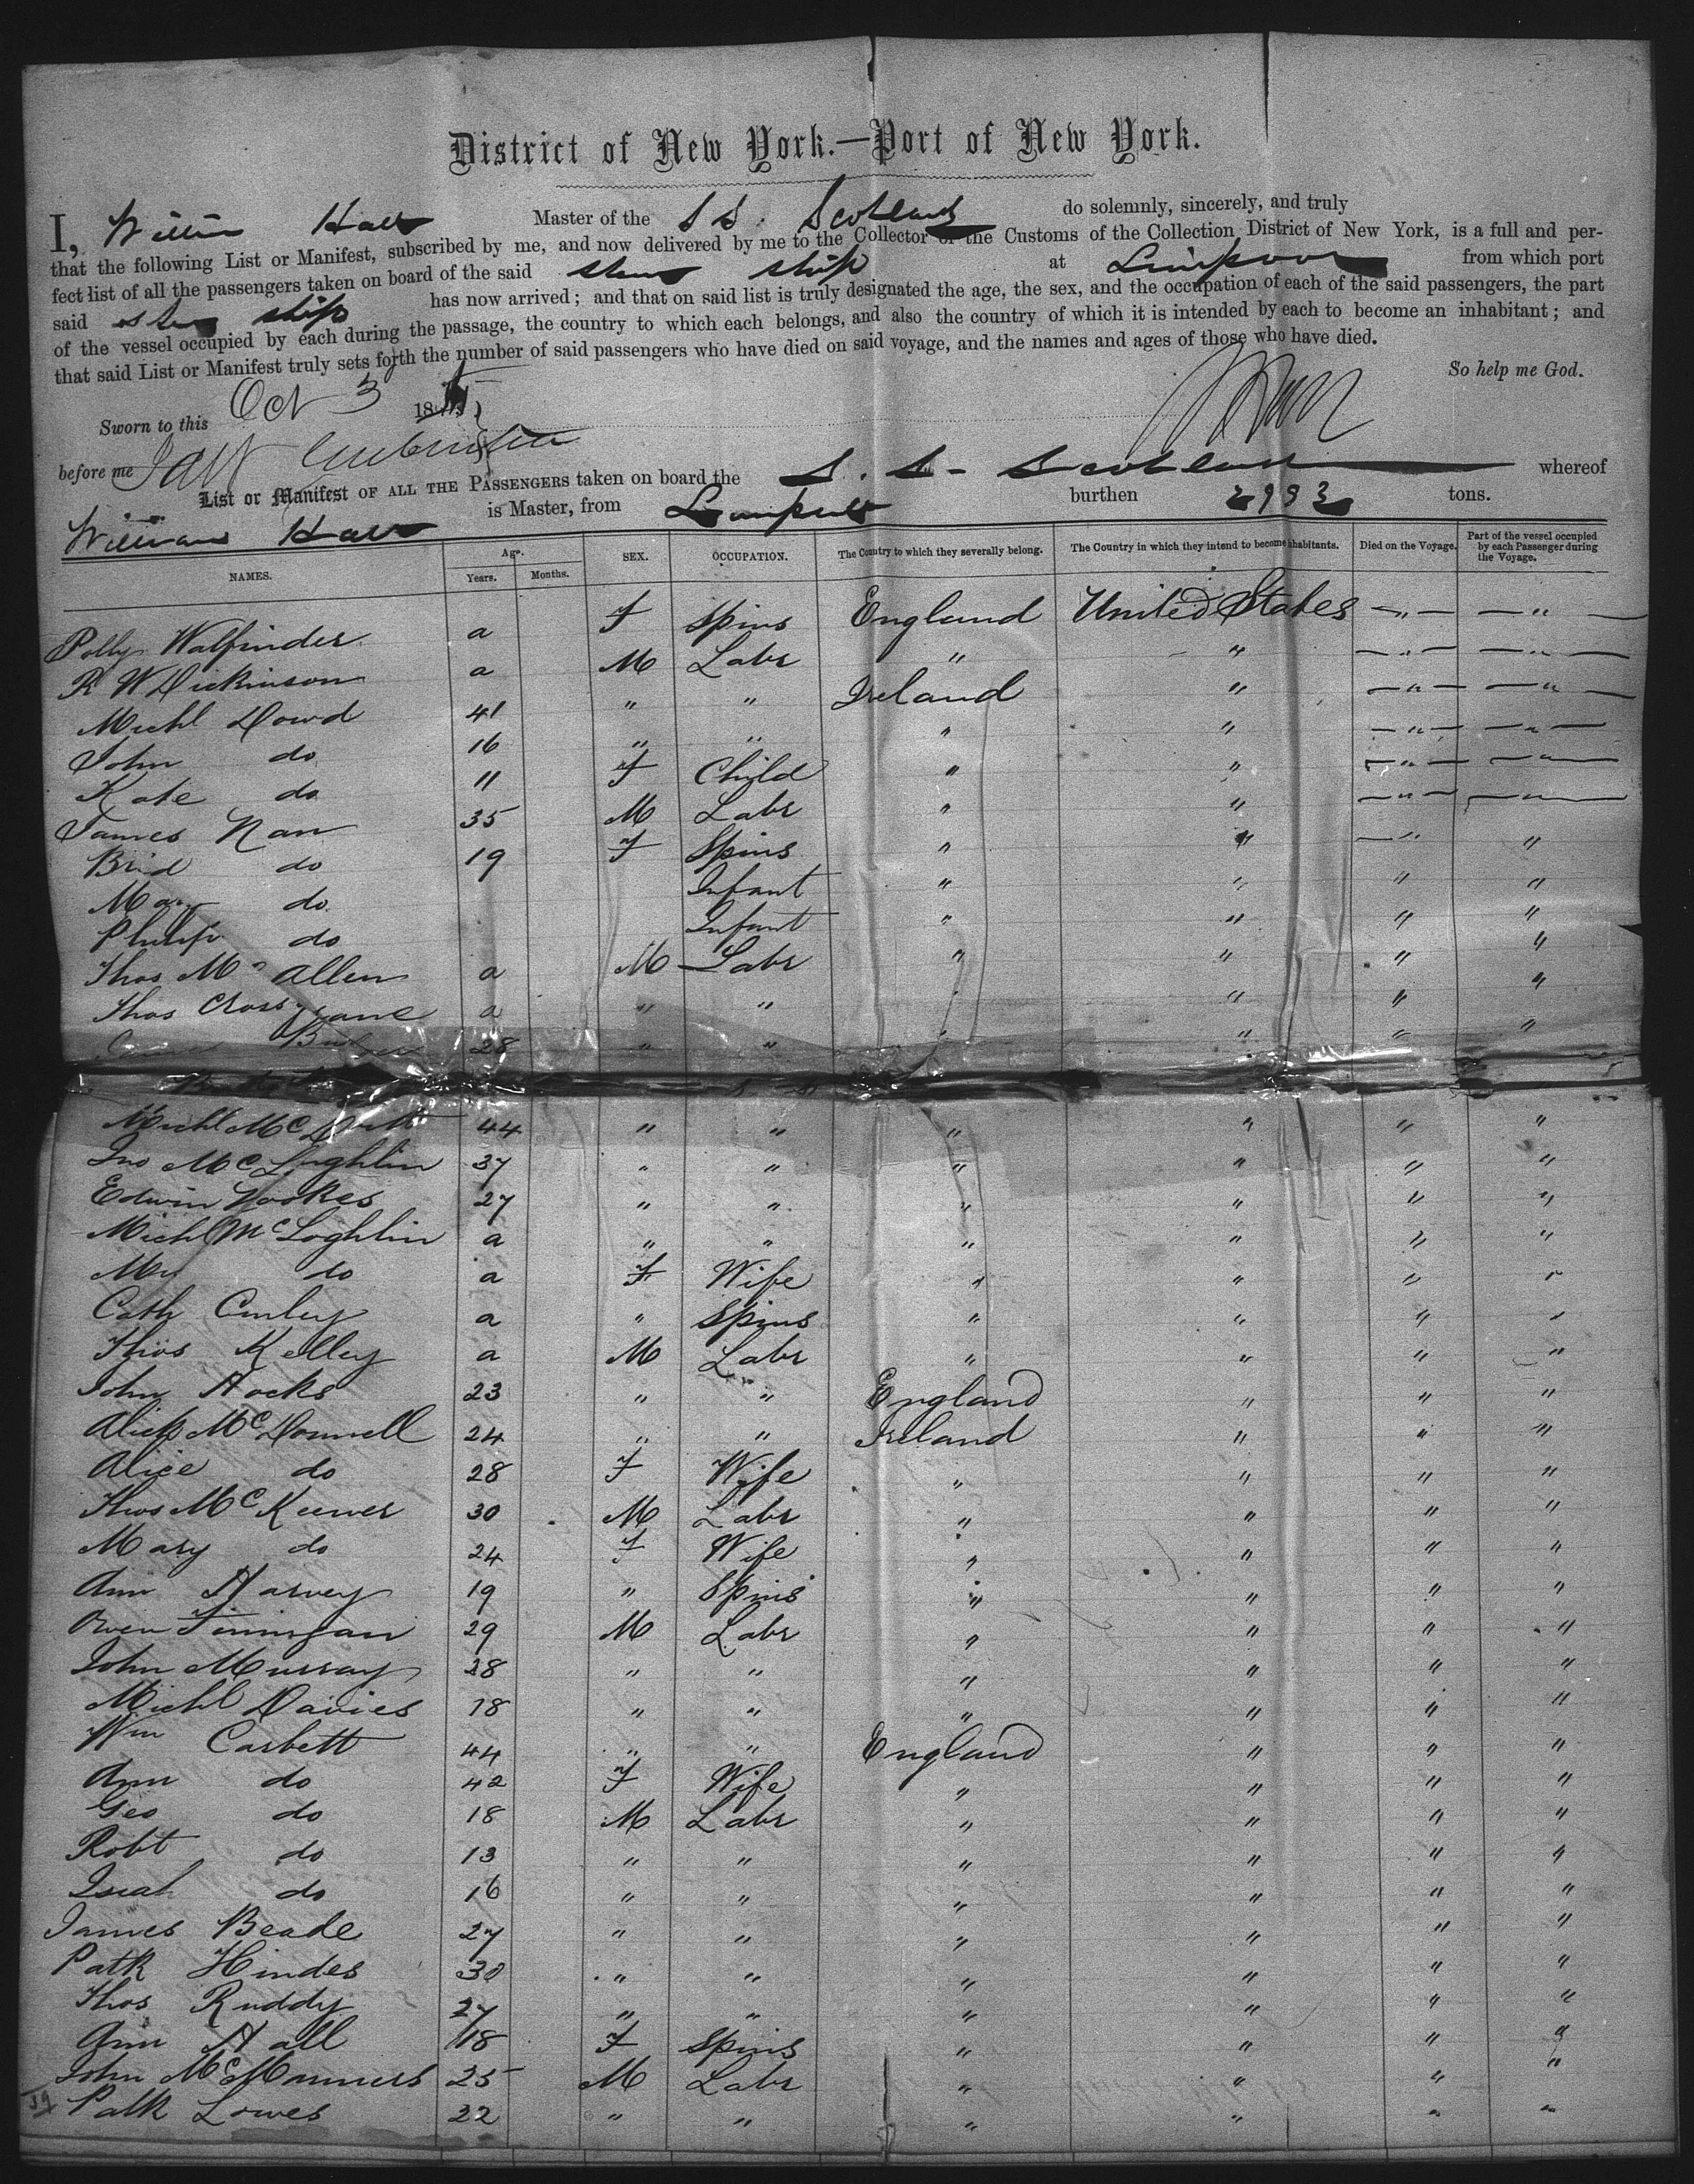 District of New York.—Port of New York.
I, William Hall Master of the S S. Scotland do solemnly, sincerely, and truly
that the following List or Manifest, subscribed by me, and now delivered by me to the Collector of the Customs of the Collection District of New York, is a full and per-
fect list of all the passengers taken on board of the said steam ship at Liverpool from which port
said steam ship has now arrived; and that on said list is truly designated the age, the sex, and the occupation of each of the said passengers, the part
of the vessel occupied by each during the passage, the country to which each belongs, and also the country of which it is intended by each to become an inhabitant; and
that said List or Manifest truly sets forth the number of said passengers who have died on said voyage, and the names and ages of those who have died.
So help me God.
Sworn to this Oct 3 18
before me
List or Manifest OF ALL THE PASSENGERS taken on board the S. S. Scotland whereof
William Hall is Master, from Liverpool burthen tons.
NAMES. Age. Years. Months. SEX. OCCUPATION. The Country to which they severally belong. The Country in which they intend to become inhabitants. Died on the Voyage. Part of the vessel occupied by each Passenger during the Voyage.
Polly Walfinder a F Spins England United States — " — — " —
R W Dickinson a M Labr " " — " — — " —
Michl Dowd 41 " " Ireland " — " — — " —
John do 16 " " " " — " — — " —
Kate do 11 F Child " " — " — — " —
James Nan 35 M Labr " " — " — — " —
Brid do 19 F Spins " " — " "
Mary do Infant " " " "
Philip do Infant " " " "
Thos Mc Allen a M Labr " " " "
Thos Cross a " " " " " "
28 " " " " " "
Michl Mc 44 " " " " " "
Jno McLoghlin 37 " " " " " "
Edwin Yookes 27 " " " " " "
Michl McLoghlin a " " " " " "
Mrs do a F Wife " " " "
Cath Curley a " Spins " " " "
Thos Kelley a M Labr " " " "
John Hocks 23 " " England " " "
Alick McDonnell 24 " " Ireland " " "
Alice do 28 F Wife " " " "
Thos McKeever 30 M Labr " " " "
Mary do 24 F Wife " " " "
Ann Harvey 19 " Spins " " " "
Owen Finnigan 29 M Labr " " " "
John Murray 28 " " " " " "
Michl Davies 18 " " " " " "
Wm Corbett 44 " " England " " "
Ann do 42 F Wife " " " "
Geo do 18 M Labr " " " "
Robt do 13 " " " " " "
Isiah do 16 " " " " " "
James Beade 27 " " " " " "
Patk Hindes 30 " " " " " "
Thos Ruddy 27 " " " " " "
Ann Hall 18 F Spins " " " "
John McManners 25 M Labr " " " "
Patk Lowes 22 " " " " " "